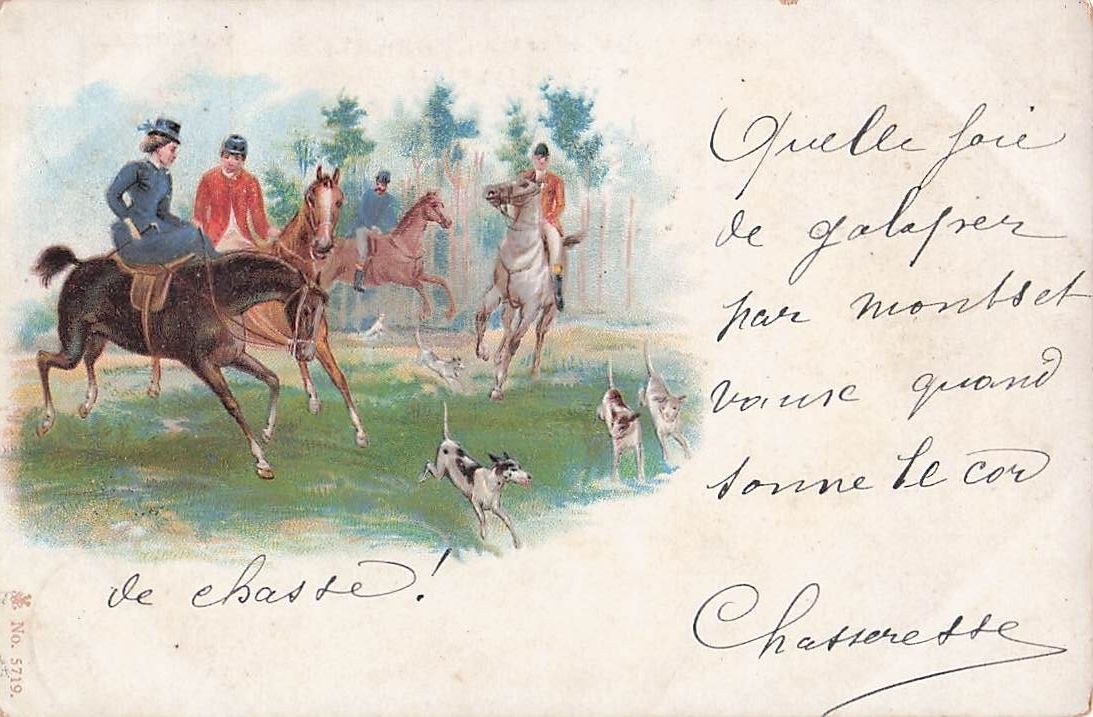 Quelle joie
de galoper
par monts et
vaux quand
sonne le cor
de chasse!
Chasseresse
No. 5719.